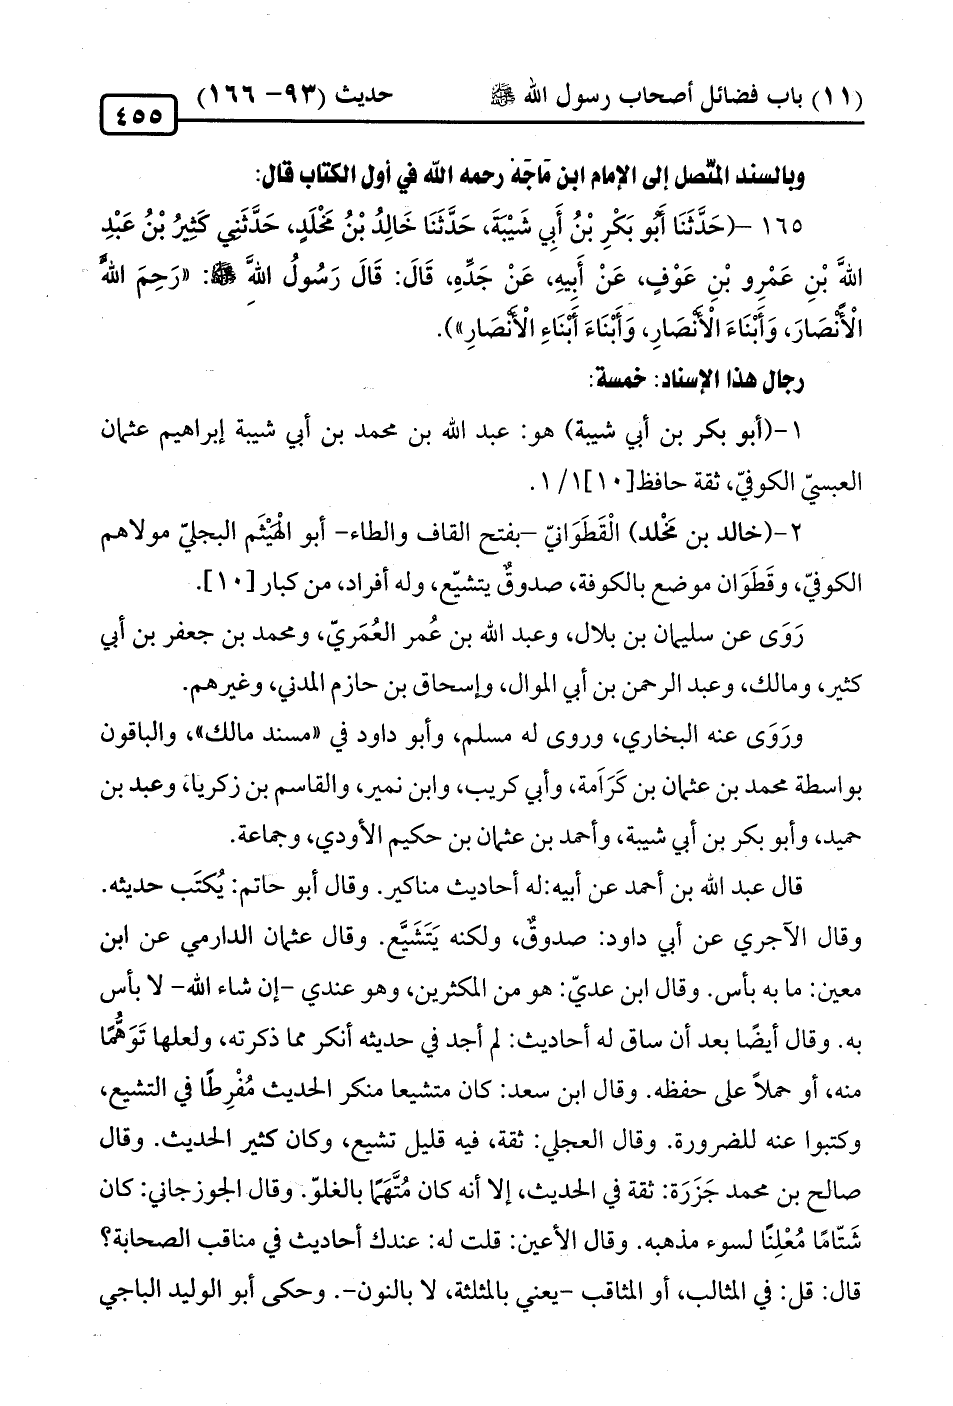 (١١) باب فضائل أصحاب رسول الله ﷺ حديث (٩٣- ١٦٦)
٤٥٥
وبالسند المتّصل إلى الإمام ابن مَاجَهْ رحمه الله في أول الكتاب قال:
١٦٥ -(حَدَّثَنَا أَبُو بَكْرِ بْنُ أَبِي شَيْبَةَ، حَدَّثَنَا خَالِدُ بْنُ مَخْلَدٍ، حَدَّثَنِي كَثِيرُ بْنُ عَبْدِ
اللهَ بْنِ عَمْرِو بْنِ عَوْفٍ، عَنْ أَبِيهِ، عَنْ جَدِّهِ، قَالَ: قَالَ رَسُولُ اللهَِ ﷺ: «رَحِمَ اللهَُ
الْأَنْصَارَ، وَأَبْنَاءَ الْأَنْصَارِ، وَأَبْنَاءَ أَبْنَاءِ الْأَنْصَارِ»).
رجال هذا الإسناد: خمسة:
١-(أبو بكر بن أبي شيبة) هو: عبد الله بن محمد بن أبي شيبة إبراهيم عثمان
العبسيّ الكوفيّ، ثقة حافظ[١٠]١/ ١.
٢-(خالد بن مَخْلد) الْقَطَوَانيّ -بفتح القاف والطاء- أبو الْهَيْثَم البجليّ مولاهم
الكوفيّ، وقَطَوَان موضع بالكوفة، صدوقٌ يتشيّع، وله أفراد، من كبار [١٠].
رَوَى عن سليمان بن بلال، وعبد الله بن عُمر العُمَريّ، ومحمد بن جعفر بن أبي
كثير، ومالك، وعبد الرحمن بن أبي الموال، وإسحاق بن حازم المدني، وغيرهم.
ورَوَى عنه البخاري، وروى له مسلم، وأبو داود في «مسند مالك»، والباقون
بواسطة محمد بن عثمان بن كَرَامة، وأبي كريب، وابن نمير، والقاسم بن زكريا، وعبد بن
حميد، وأبو بكر بن أبي شيبة، وأحمد بن عثمان بن حكيم الأودي، وجماعة.
قال عبد الله بن أحمد عن أبيه:له أحاديث مناكير. وقال أبو حاتم: يُكتَب حديثه.
وقال الآجري عن أبي داود: صدوقٌ، ولكنه يَتَشَيَّع. وقال عثمان الدارمي عن ابن
معين: ما به بأس. وقال ابن عديّ: هو من المكثرين، وهو عندي -إن شاء الله- لا بأس
به. وقال أيضًا بعد أن ساق له أحاديث: لم أجد في حديثه أنكر مما ذكرته، ولعلها تَوَهُّمًا
منه، أو حملاً على حفظه. وقال ابن سعد: كان متشيعا منكر الحديث مُفْرِطًا في التشيع،
وكتبوا عنه للضرورة. وقال العجلي: ثقة، فيه قليل تشيع، وكان كثير الحديث. وقال
صالح بن محمد جَزَرَة: ثقة في الحديث، إلا أنه كان مُتَّهَمًا بالغلوّ. وقال الجوزجاني: كان
شَتّامًا مُعْلِنًا لسوء مذهبه. وقال الأعين: قلت له: عندك أحاديث في مناقب الصحابة؟
قال: قل: في المثالب، أو المثاقب -يعني بالمثلثة، لا بالنون-. وحكى أبو الوليد الباجي